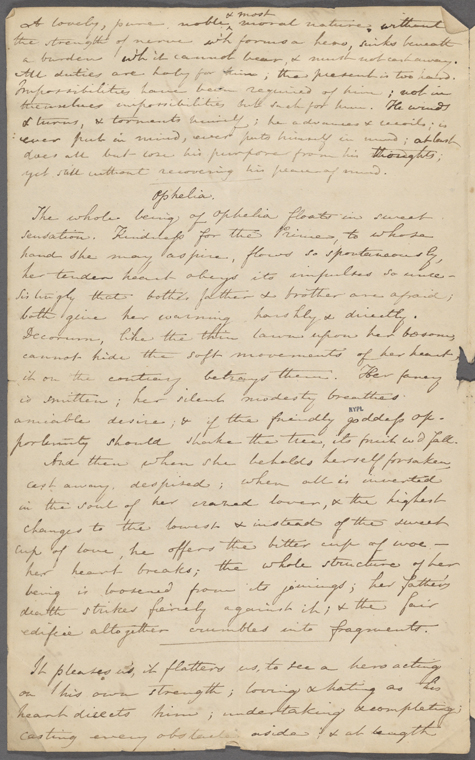 & most
A lovely, pure, noble moral nature, without
the strength of nerve wh forms a hero, sinks beneath
a burden wh it cannot bear, & must not cast away.
All duties are holy for him; the present is too hard.
Impossibilities have been required of him; not in
themselves impossibilities but such for him. He winds
& turns, & torments himself; he advances & recoils; is
ever put in mind, ever puts himself in mind; at last
does all but lose his purpose from his thoughts;
yet still without recovering his peace of mind.
Ophelia.
The whole being of Ophelia floats in sweet
sensation. Kindness for the Prince, to whose
hand she may aspire, flows so spontaneously,
her tender heart obeys its impulses so unre-
sistingly that both father & brother are afraid;
both give her warning harshly & directly.
Decorum, like the thin lawn upon her bosom,
cannot hide the soft movements of her heart,
it on the contrary betrays them. Her fancy
is smitten; her silent modesty breathes
amiable desire; & if the friendly goddess Op-
NYPL
portunity should shake the tree, its fruit wd fall.
And then when she beholds herself forsaken
cast away, despised; when all is inverted
in the soul of her crazed lover, & the highest
changes to the lowest & instead of the sweet
cup of love, he offers the bitter cup of woe—
her heart breaks; the whole structure of her
being is loosened from its joinings; her father's
death strikes fiercely against it; & the fair
edifice altogether crumbles into fragments.
It pleases us, it flatters us, to see a hero acting
on his own strength; loving & hating as his
heart directs him; undertaking & completing;
casting every obstacle aside; & at length